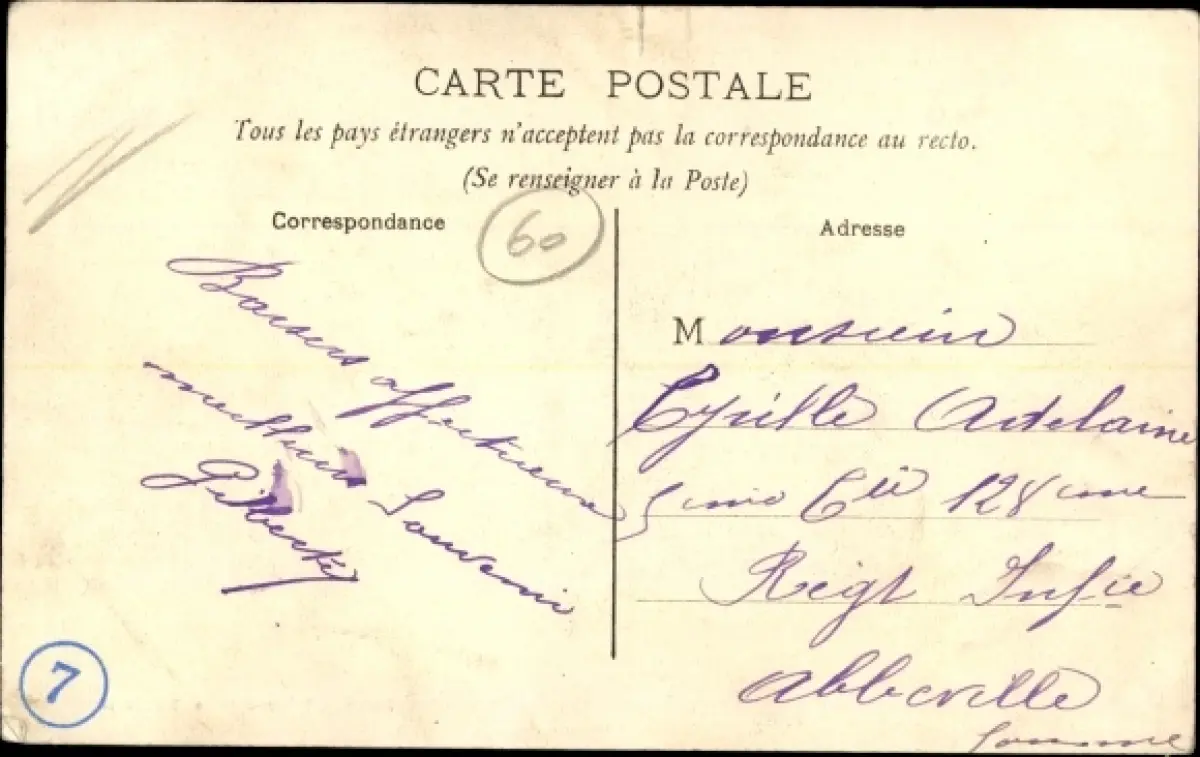 CARTE POSTALE
Tous les pays étrangers n'acceptent pas la correspondance au recto.
(Se renseigner à la Poste)
Correspondance
60
Baisers affectueux
meilleur Souvenir
Gilberte
7
Adresse
Monsieur
Cyrille Adelaine
5 me Cie 128 eme
Regt Inf ie
Abbeville
Somme